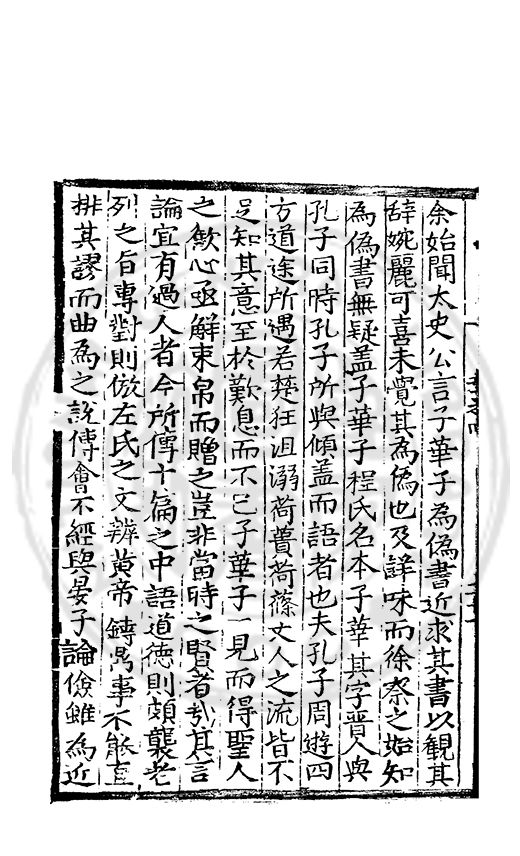 余始聞太史公言子華子為偽書近求其書以觀其
辞婉麗可喜未覺其為偽也及詳味而徐察之始知
為偽書無疑蓋子華子程氏名本子華其字晉人與
孔子同時孔子所與傾盖而語者也夫孔子周遊四
方道途所遇若楚狂沮溺荷蕢荷蓧丈人之流皆不
足知其意至於歎息而不已子華子一見而得聖人
之歡心亟解束帛而贈之豈非當時之賢者㢤其言
論宜有過人者今所傳十篇之中語道德則頗襲老
列之旨專對則倣左氏之文辨黄帝鑄鼎事不能直
排其謬而曲為之說傅會不經與晏子論儉雖為近